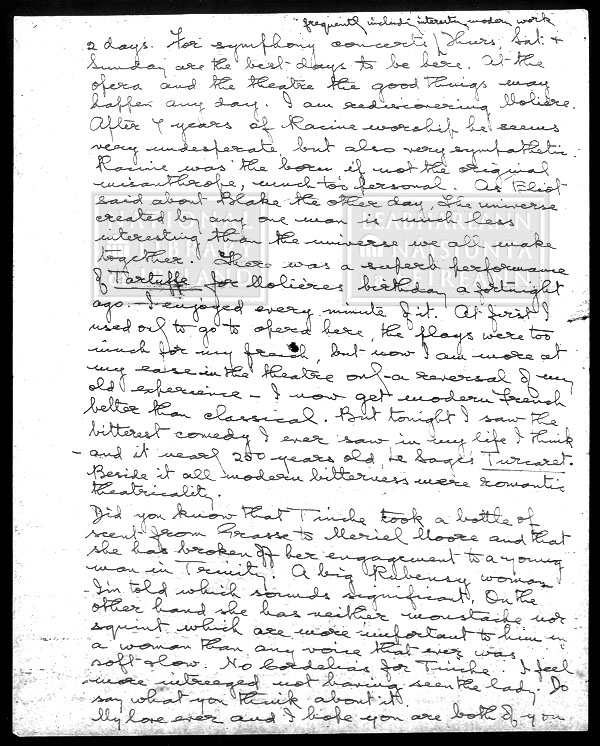 frequently include interesting modern work
2 days. For symphony concerts Thurs, Sat. +
Sunday are the best days to be here. At the
opera and the theatre the good things may
happen any day. I am rediscovering Molière.
After 7 years of Racine worship he seems
very undesperate but also very sympathetic.
Racine was the born, if not the original,
misanthrope, much too personal. As Eliot
said about Blake the other day, the universe
created by any one man is much less
interesting than the universe we all make
together. There was a superb performance
of Tartuffe for Molière's birthday a fortnight
ago. – I enjoyed every minute of it. At first I
used only to go to opera here, the plays were too
much for my French, but now I am more at
my ease in the theatre and – a reversal of my
old experience – I now get modern French
better than classical. But tonight I saw the
bitterest comedy I ever saw in my life I think
– and it nearly 250 years old, Le Sage's Turcaret.
Beside it all modern bitterness mere romantic
theatricality.
Did you know that Tinche took a bottle of
scent from Grasse to Meriel Moore and that
she has broken off her engagement to a young
man in Trinity. A big Rubensy woman
I'm told which sounds significant. On the
other hand she has neither moustache nor
squint which are more important to him in
a woman than any voice that ever was
soft + low. No Cordelias for Tinche. I feel
more intreeged not having seen the lady. Do
say what you think about it.
My love ever and I hope you are both of you
LEABHARLANN
NÁISIÚNTA
NATIONAL
LIBRARY